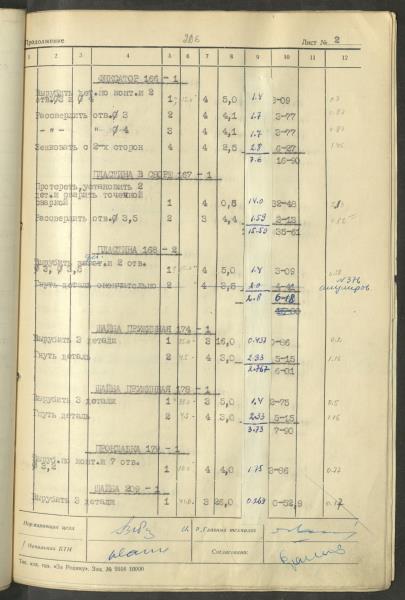 Продолжение 206 Лист № 2
1 2 3 4 5 6 7 8 9 10 11 12
ФИКСАТОР 166 - 1
Вырубить дет. по конт. и 2
отв. ø 3 и ø 4 1 4 5,0 1.4 3-09
Рассверлить отв. ø 3 2 4 4,1 1.7 3-77
- " - " ø 4 3 4 4,1 1.7 3-77
Зенковать с 2-х сторон 4 4 2,5 2.8 6-27
7.6 16-90
ПЛАСТИНА В СБОРЕ 167 - 1
Протереть, установить 2
дет. и сварить точечной
сваркой 1 4 0,5 14.0 32-48
Рассверлить отв. ø 3,5 2 3 4,4 1.59 3-13
15.59 35-61
ПЛАСТИНА 168 - 2
Вырубить дет. и 2 отв.
ø 3, ø 3,5 1 4 5,0 1.4 3-09
Гнуть деталь окончательно 2 4 3,5 2.0 4-41
2.8 6-18
№ 376
анулиров
ШАЙБА ПРУЖИННАЯ 174 - 1
Вырубить 3 детали 1 3 16,0 0.437 0-86
Гнуть деталь 2 4 3,0 2.33 5-15
2.767 6-01
ШАЙБА ПРУЖИННАЯ 178 - 1
Вырубить 3 детали 1 3 5,0 1.4 2-75
Гнуть деталь 2 4 3,0 2.33 5-15
3.73 7-90
ПРОКЛАДКА 179 - 1
Выруб. по конт. и 7 отв.
ø 3,2 1 4 4,0 1.75 3-86
ШАЙБА 209 - 1
Вырубить 3 детали 1 3 26,0 0.269 0-52,9
Нормировщик цеха Главный технолог
Начальник БТН Согласовано:
Тип. изд. газ. «За Родину». Зак. № 9516 10000